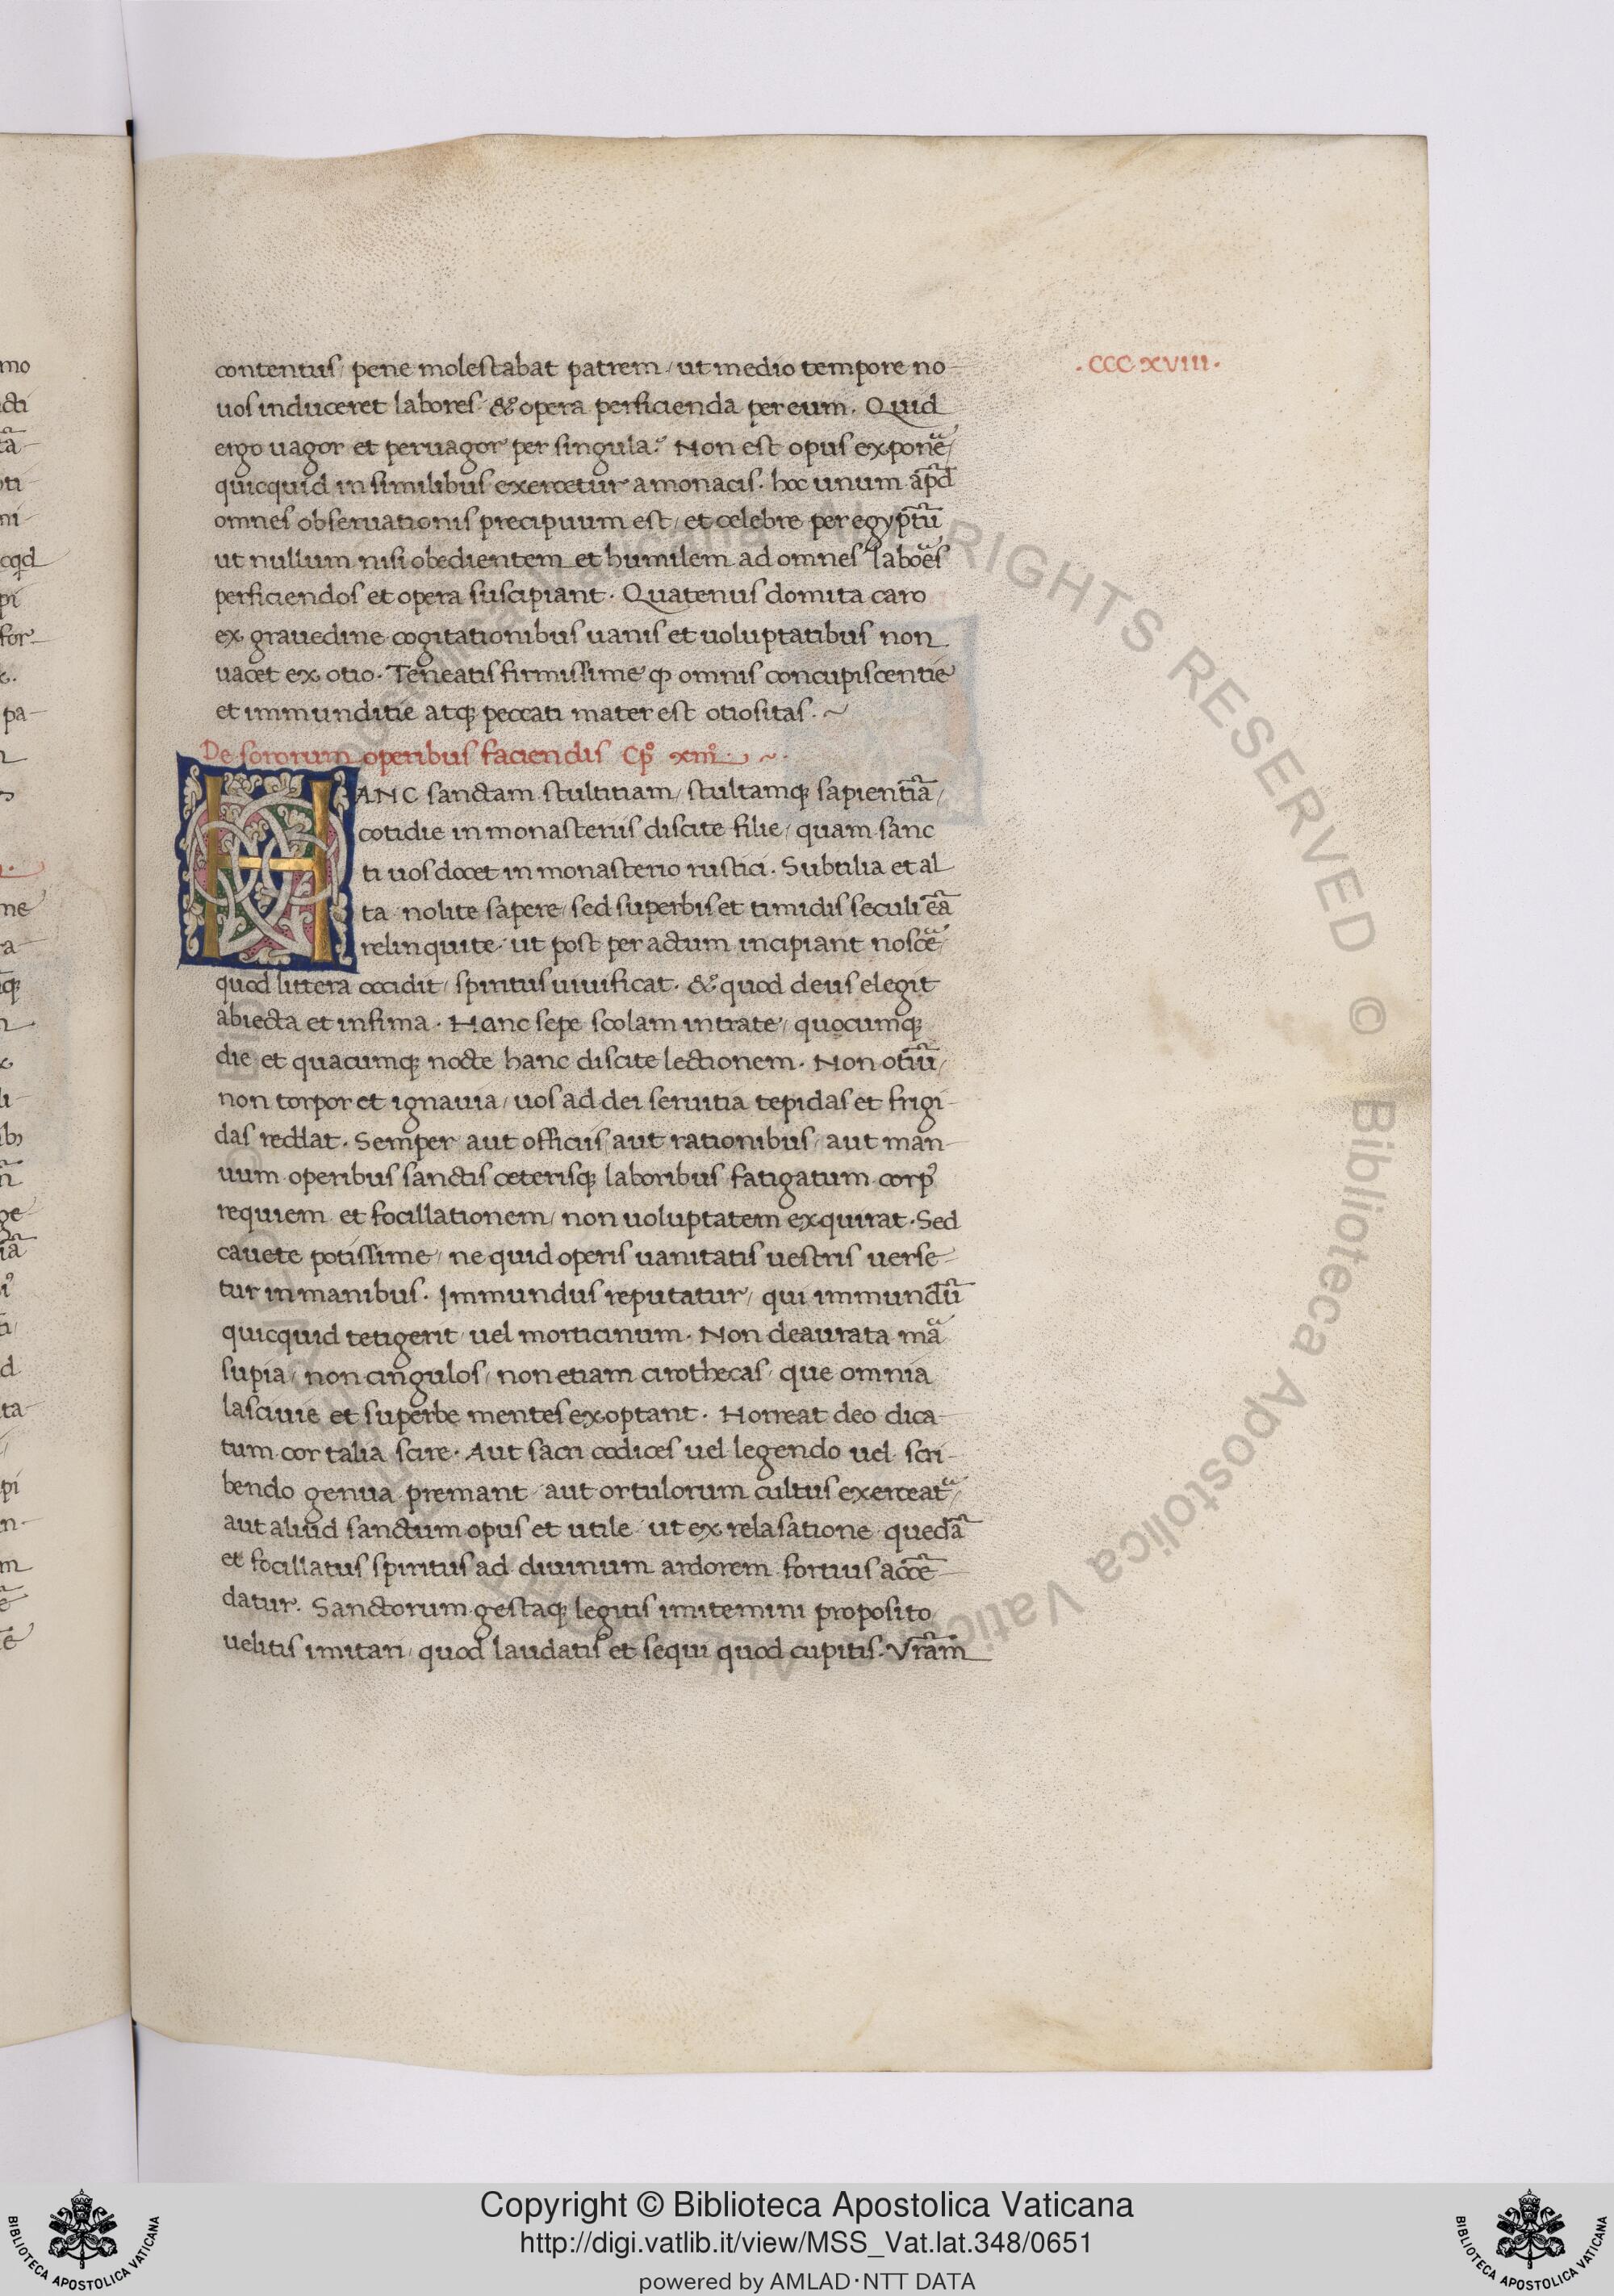 contentus / pene molestabat patrem / ut medio tempore no-
.CCC.XVIII.
uos induceret labores / & opera perficienda per eum. Quid
ergo uagor et peruagor per singula? Non est opus exponē /
quicquid in similibus exercetur a monacis. hoc unum ap̄d
omnes obseruationis precipuum est / et celebre per egyptū
ut nullum nisi obedientem et humilem ad omnes laboēs
perficiendos et opera suscipiant. Quatenus domita caro
ex grauedine cogitationibus uanis et uoluptatibus non
uacet ex otio. Teneatis firmissime qꝫ omnis concupiscentie
et immunditie atqꝫ peccati mater est otiositas. ~
De sororum operibus faciendis Cp̊ xiii̊. ~.
HANC sanctam stultitiam / stultamqꝫ sapientiā /
cotidie in monasteriis discite filie / quam sanc
ti uos docet in monasterio rustici. Subtilia et al
ta nolite sapere / sed superbis et timidis seculi eā
relinquite / ut post peractum incipiant noscē /
quod littera occidit / spiritus uiuificat. & quod deus elegit
abiecta et infima. Hanc sepe scolam intrate / quocumqꝫ
die et quacumqꝫ nocte hanc discite lectionem. Non otiū /
non torpor et ignauia / uos ad dei seruitia tepidas et frigi-
das reddat. Semper aut officiis / aut rationibus / aut man-
uum operibus sanctis ceterisqꝫ laboribus fatigatum corpꝰ
requiem et focillationem / non uoluptatem exquirat. Sed
cauete potissime / ne quid operis uanitatis uestris uerse-
tur in manibus. Immundus reputatur / qui immundū
quicquid tetigerit uel morticinum. Non deaurata mā
supia / non cingulos / non etiam cirothecas / que omnia
lasciuie et superbe mentes exoptant. Horreat deo dica-
tum cor talia scire. Aut sacri codices uel legendo uel scri-
bendo genua premant / aut ortulorum cultus exerceat /
aut aliud sanctum opus et utile / ut ex relasatione quedā
et focillatus spiritus ad diuinum ardorem fortius accē-
datur. Sanctorum gestaqꝫ legitis imitemini proposito
uelitis imitari / quod laudatis et sequi quod cupitis. Vrām
ALL RIGHTS RESERVED © Biblioteca Apostolica Vaticana
Copyright © Biblioteca Apostolica Vaticana
http://digi.vatlib.it/view/MSS_Vat.lat.348/0651
powered by AMLAD·NTT DATA
BIBLIOTECA APOSTOLICA VATICANA
BIBLIOTECA APOSTOLICA VATICANA